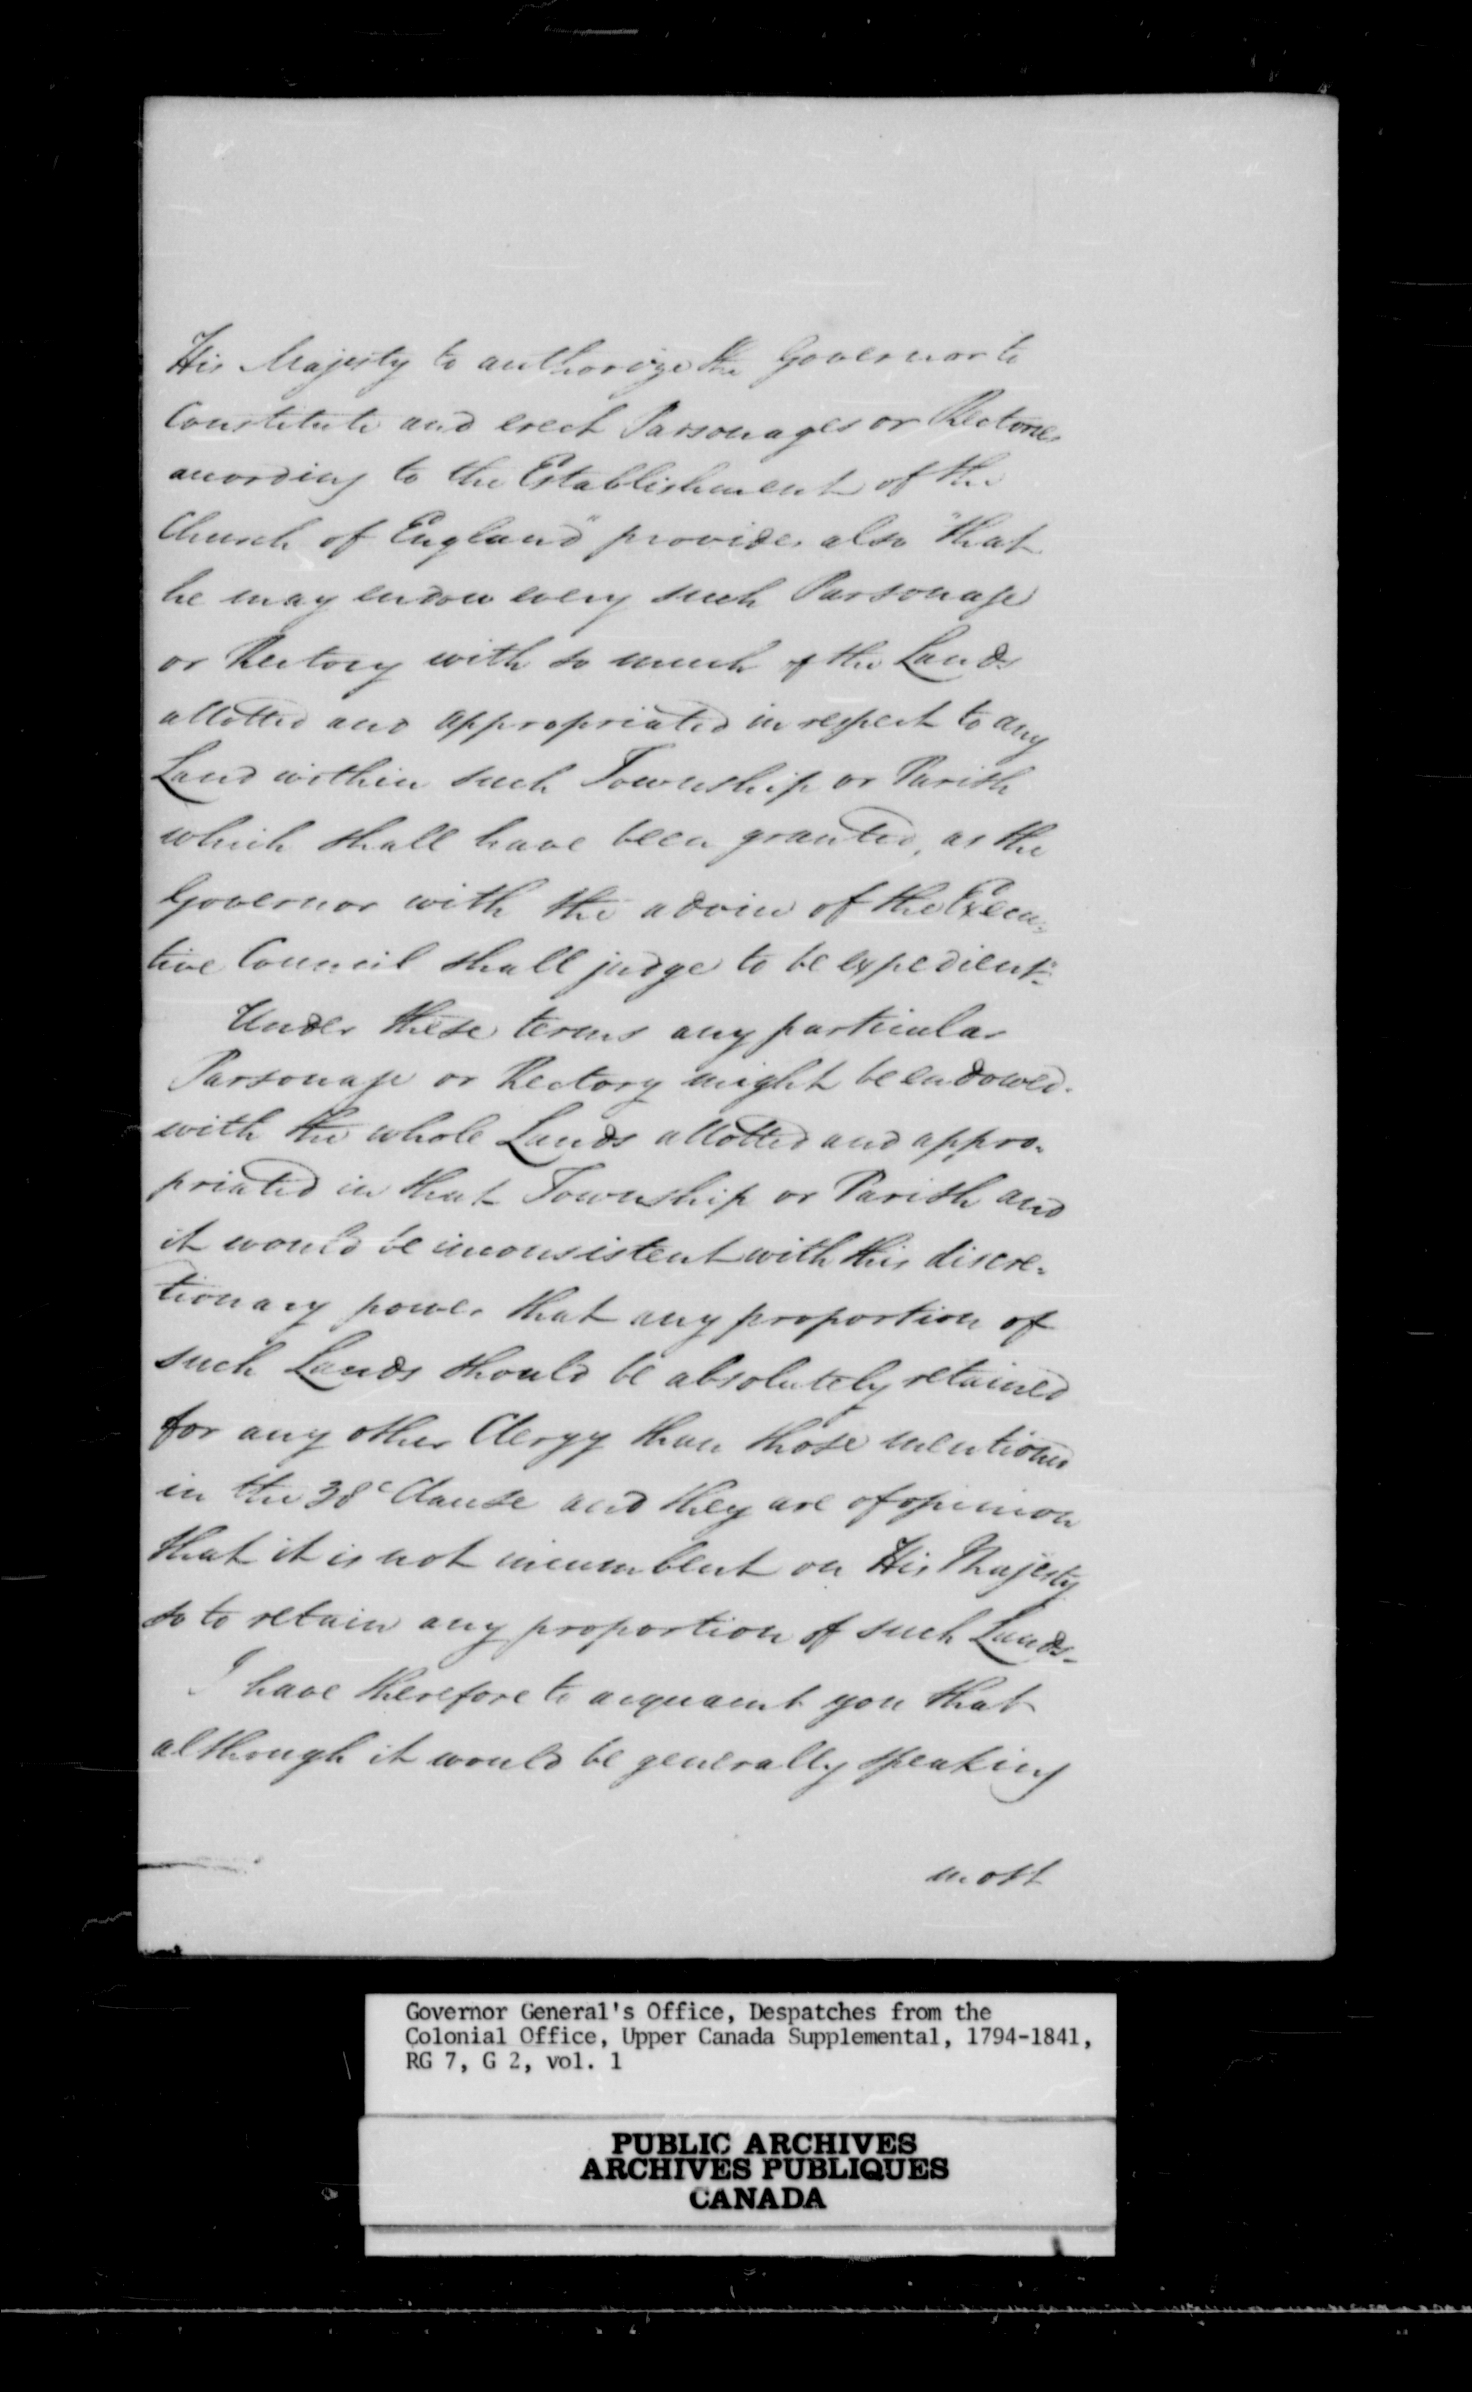 His Majesty to authorize the Governor to
Constitute and erect Parsonages or Rectories
according to the Establishment of the
Church of England" provides also "that
he may endow every such Parsonage
or Rectory with so much of the Lands
allotted and appropriated in respect to any
Land within such Township or Parish
which shall have been granted, as the
Governor with the advice of the Execu=
tive Council shall judge to be expedient":
Under these terms any particular
Parsonage or Rectory might be endowed
with the whole Lands allotted and appro=
priated in that Township or Parish and
it would be inconsistent with this discre=
tionary power that any proportion of
such Lands should be absolutely retained
for any other Clergy than those mentioned
in the 38 Clause and they are of opinion
that it is not incumbent on His Majesty
so to retain any proportion of such Lands_
I have therefore to acquaint you that
although it would be generally speaking
most
Governor General's Office, Despatches from the
Colonial Office, Upper Canada Supplemental, 1794-1841,
RG 7, G 2, vol. 1
PUBLIC ARCHIVES
ARCHIVES PUBLIQUES
CANADA